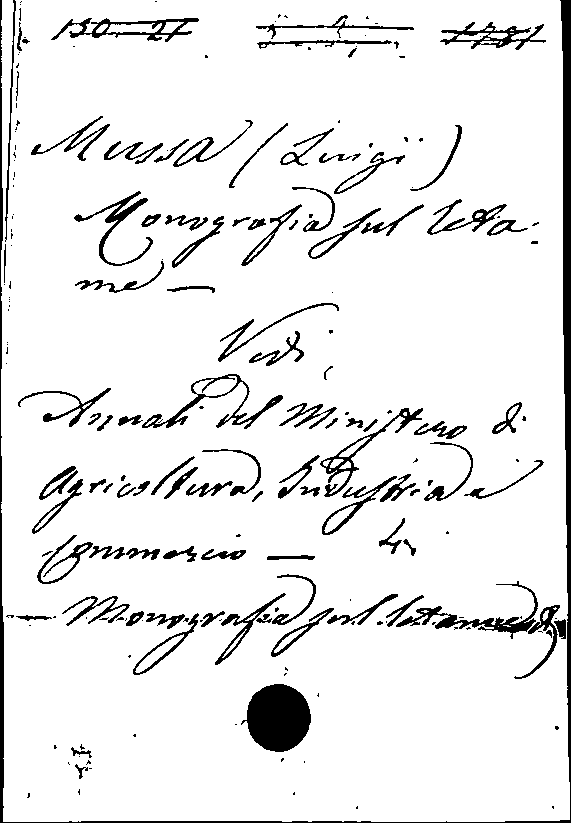 130 21 1781
Mussa (Luigi)
Monografia sul leta:
me —
Vedi,
Annali del Ministero di
Agricoltura, Industria e
Commercio — 4.
— Monografia sul letame